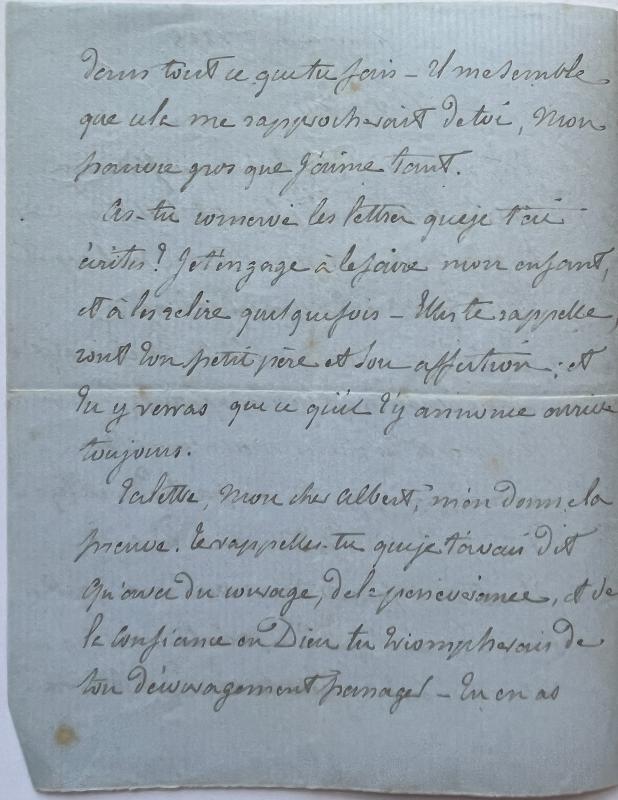 dans tout ce que tu fais – Il me semble
que cela me rapprocherait de toi, Mon
pauvre gros que J'aime tant.
As-tu conservé les lettres que je t'ai
écrites ? Je t'engage à le faire mon enfant,
et à les relire quelquefois – Elles te rappelle,
ront ton petit père et son affection ; et
Tu y verras que ce qu'il t'y annonce arrive
toujours.
Ta lettre, Mon cher Albert, m'en donne la
preuve. Te rappelles-tu que je t'avais dit
qu'avec du courage, de la persévérance, et de
la Confiance en Dieu tu triompherais de
ton découragement passager – Tu en as